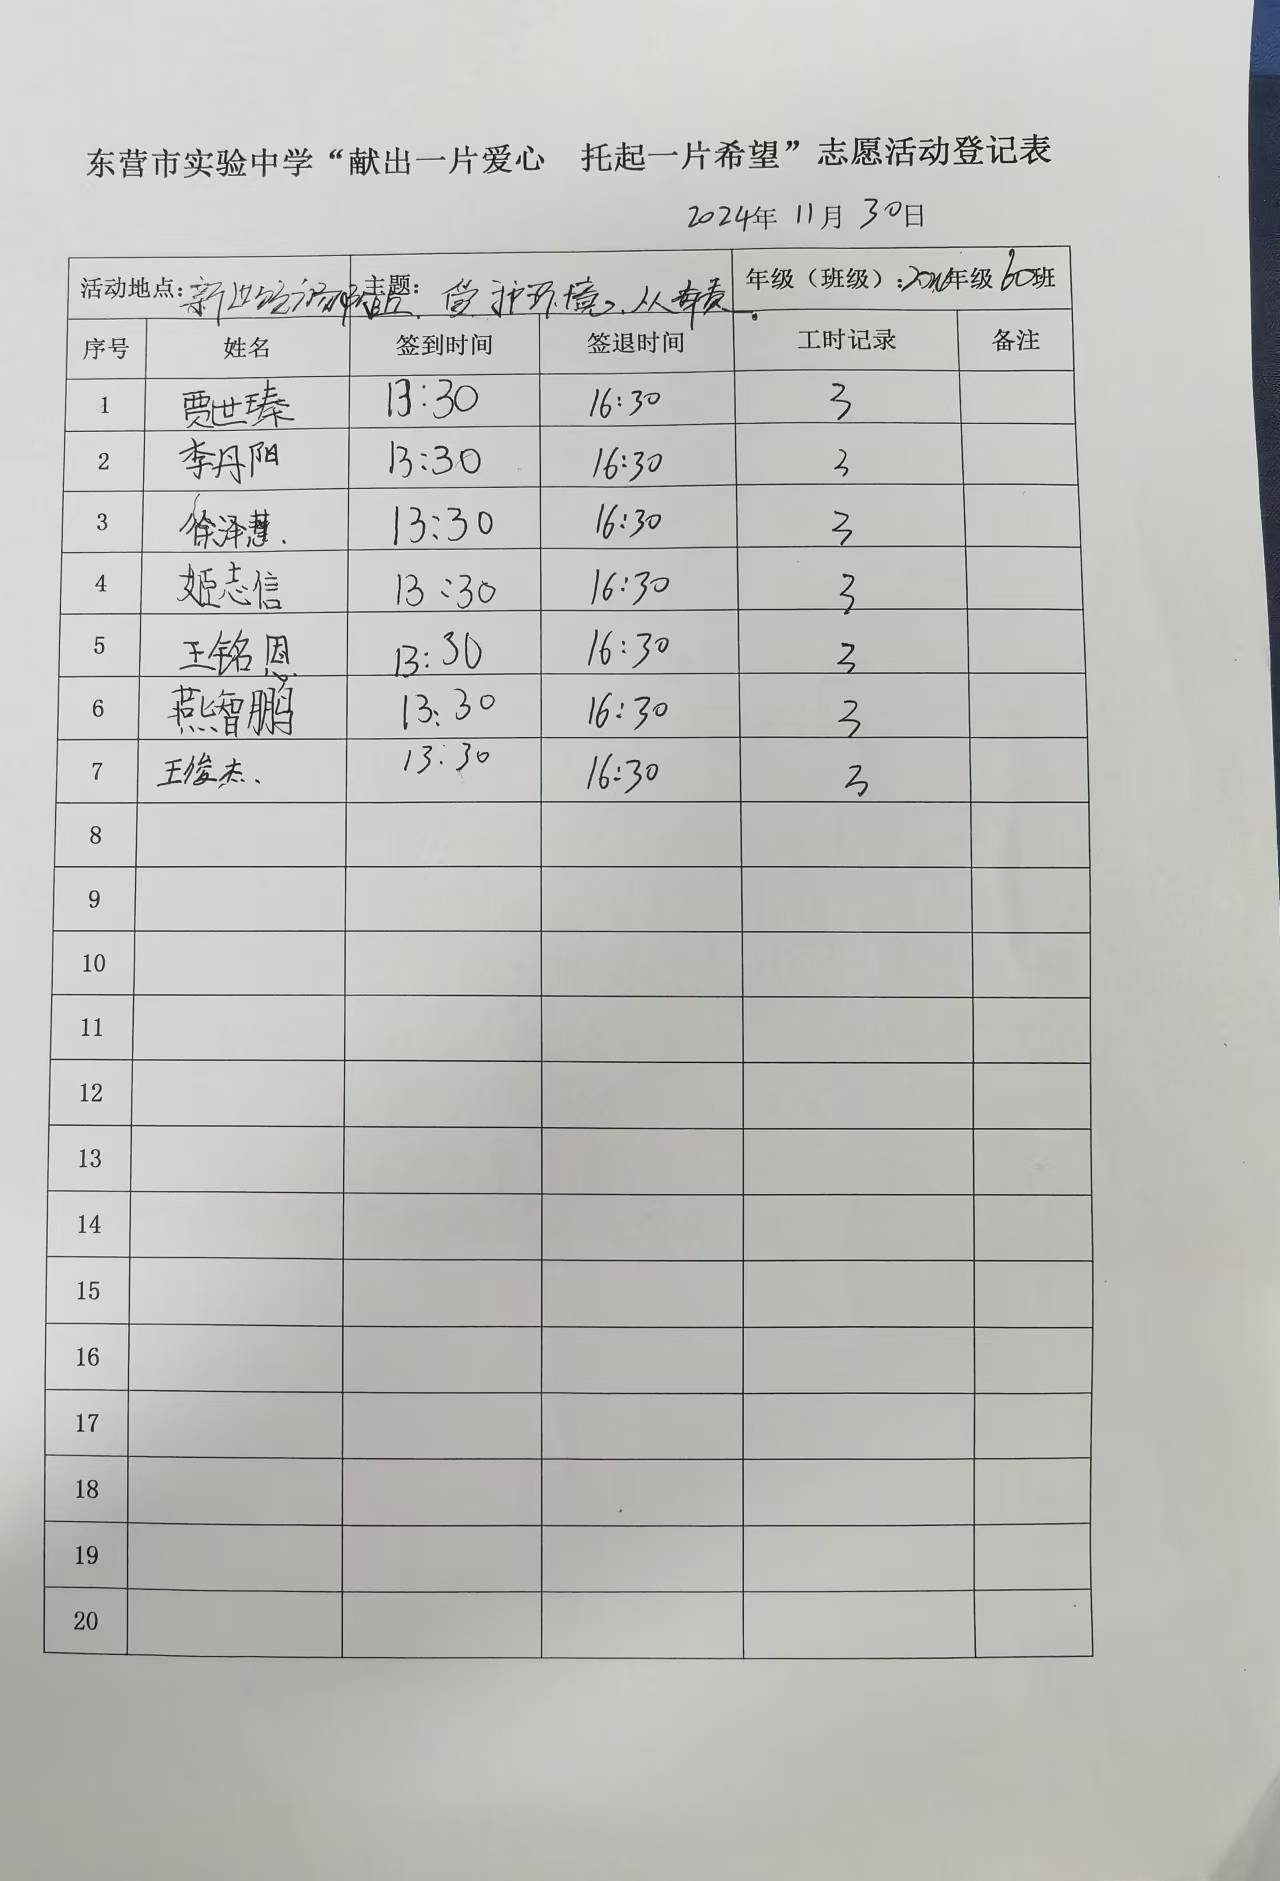 东营市实验中学“献出一片爱心 托起一片希望”志愿活动登记表
2024年 11月 30日
活动地点: 主题: 护环境,从 年级（班级）: 年级 60班
序号 姓名 签到时间 签退时间 工时记录 备注
1 贾世瑧 13:30 16:30 3
2 李丹阳 13:30 16:30 3
3 徐泽慧. 13:30 16:30 3
4 姬志信 13:30 16:30 3
5 王铭恩 13:30 16:30 3
6 燕智鹏 13:30 16:30 3
7 王俊杰、 13:30 16:30 3
8
9
10
11
12
13
14
15
16
17
18
19
20